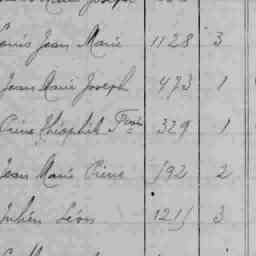 Marie Joseph
Louis Jean Marie 1128 3
Jean Marie Joseph 473 1
Pierre Théophile Frçois 329 1
Jean Marie Pierre 192 2
Julien Léon 1211 3